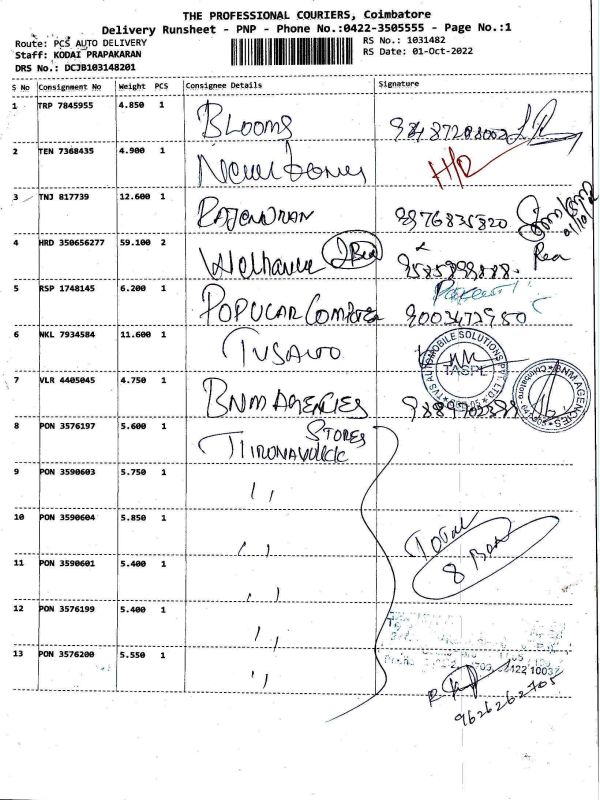 THE PROFESSIONAL COURIERS, Coimbatore
Delivery Runsheet - PNP - Phone No.:0422-3505555 - Page No.:1
Route: PCS AUTO DELIVERY RS No.: 1031482
Staff: KODAI PRAPAKARAN RS Date: 01-Oct-2022
DRS No.: DCJB103148201
S No Consignment No Weight PCS Consignee Details Signature
1 TRP 7845955 4.850 1 BLOOMS
2 TEN 7368435 4.900 1
3 TNJ 817739 12.600 1 RAJENDRAN 9976835820
4 HRD 350656277 59.100 2
5 RSP 1748145 6.200 1 POPULAR COMPUTER 9003472950
6 NKL 7934584 11.600 1 TVS AUTO
TVS AUTOMOBILE SOLUTIONS PVT LTD
TASPL
7 VLR 4405045 4.750 1 BNM AGENCIES
BNM AGENCIES
8 PON 3576197 5.600 1 STORES
9 PON 3590603 5.750 1 ,,
10 PON 3590604 5.850 1 ,,
TOTAL
8 Box
11 PON 3590601 5.400 1 ,,
12 PON 3576199 5.400 1 ,,
13 PON 3576200 5.550 1 ,,
9626262705